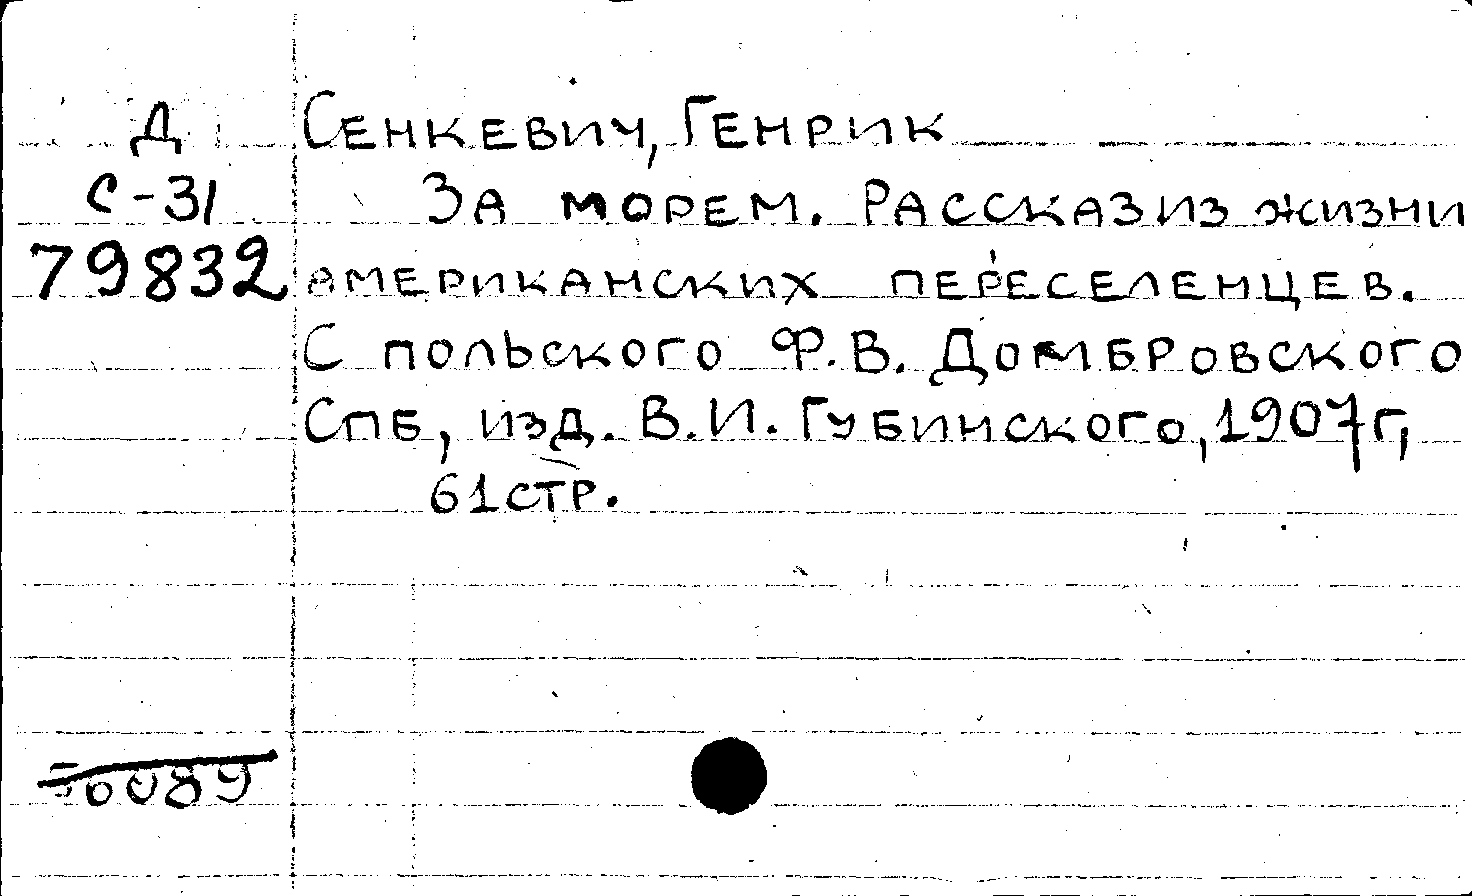 Д
С-31
79832
Сенкевич, Генрик
За морем. Рассказ из жизни
американских переселенцев.
С польского Ф.В. Домбровского
Спб, изд. В.И. Губинского, 1907г,
61 стр.